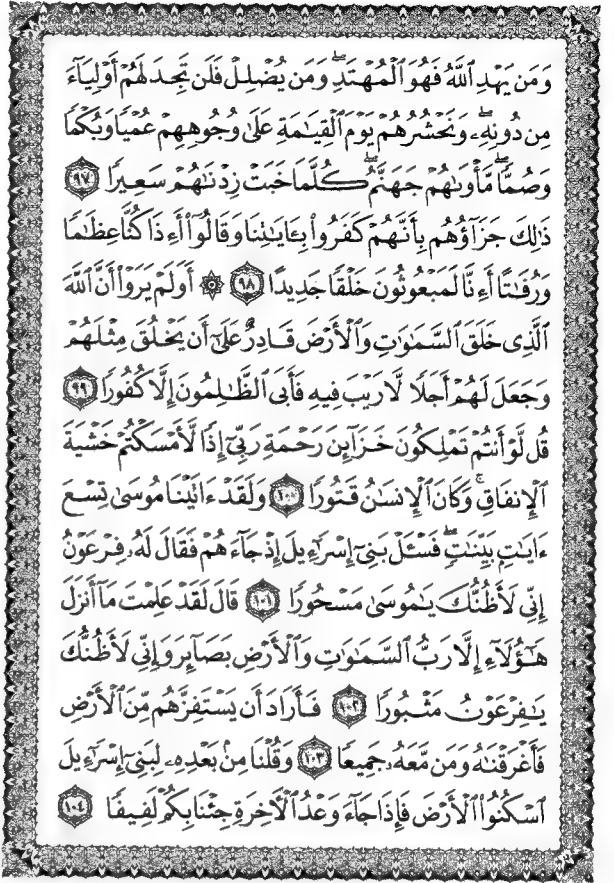 وَمَن يَهْدِ ٱللَّهُ فَهُوَ ٱلْمُهْتَدِۖ وَمَن يُضْلِلْ فَلَن تَجِدَ لَهُمْ أَوْلِيَآءَ
مِن دُونِهِۦۖ وَنَحْشُرُهُمْ يَوْمَ ٱلْقِيَٰمَةِ عَلَىٰ وُجُوهِهِمْ عُمْيًا وَبُكْمًا
وَصُمًّاۖ مَّأْوَىٰهُمْ جَهَنَّمُۖ كُلَّمَا خَبَتْ زِدْنَٰهُمْ سَعِيرًا ٩٧
ذَٰلِكَ جَزَآؤُهُم بِأَنَّهُمْ كَفَرُوا۟ بِـَٔايَٰتِنَا وَقَالُوٓا۟ أَءِذَا كُنَّا عِظَٰمًا
وَرُفَٰتًا أَءِنَّا لَمَبْعُوثُونَ خَلْقًا جَدِيدًا ٩٨ ۞ أَوَلَمْ يَرَوْا۟ أَنَّ ٱللَّهَ
ٱلَّذِى خَلَقَ ٱلسَّمَٰوَٰتِ وَٱلْأَرْضَ قَادِرٌ عَلَىٰٓ أَن يَخْلُقَ مِثْلَهُمْ
وَجَعَلَ لَهُمْ أَجَلًا لَّا رَيْبَ فِيهِ فَأَبَى ٱلظَّٰلِمُونَ إِلَّا كُفُورًا ٩٩
قُل لَّوْ أَنتُمْ تَمْلِكُونَ خَزَآئِنَ رَحْمَةِ رَبِّىٓ إِذًا لَّأَمْسَكْتُمْ خَشْيَةَ
ٱلْإِنفَاقِۚ وَكَانَ ٱلْإِنسَٰنُ قَتُورًا ١٠٠ وَلَقَدْ ءَاتَيْنَا مُوسَىٰ تِسْعَ
ءَايَٰتٍۭ بَيِّنَٰتٍۖ فَسْـَٔلْ بَنِىٓ إِسْرَٰٓءِيلَ إِذْ جَآءَهُمْ فَقَالَ لَهُۥ فِرْعَوْنُ
إِنِّى لَأَظُنُّكَ يَٰمُوسَىٰ مَسْحُورًا ١٠١ قَالَ لَقَدْ عَلِمْتَ مَآ أَنزَلَ
هَٰٓؤُلَآءِ إِلَّا رَبُّ ٱلسَّمَٰوَٰتِ وَٱلْأَرْضِ بَصَآئِرَ وَإِنِّى لَأَظُنُّكَ
يَٰفِرْعَوْنُ مَثْبُورًا ١٠٢ فَأَرَادَ أَن يَسْتَفِزَّهُم مِّنَ ٱلْأَرْضِ
فَأَغْرَقْنَٰهُ وَمَن مَّعَهُۥ جَمِيعًا ١٠٣ وَقُلْنَا مِنۢ بَعْدِهِۦ لِبَنِىٓ إِسْرَٰٓءِيلَ
ٱسْكُنُوا۟ ٱلْأَرْضَ فَإِذَا جَآءَ وَعْدُ ٱلْءَاخِرَةِ جِئْنَا بِكُمْ لَفِيفًا ١٠٤